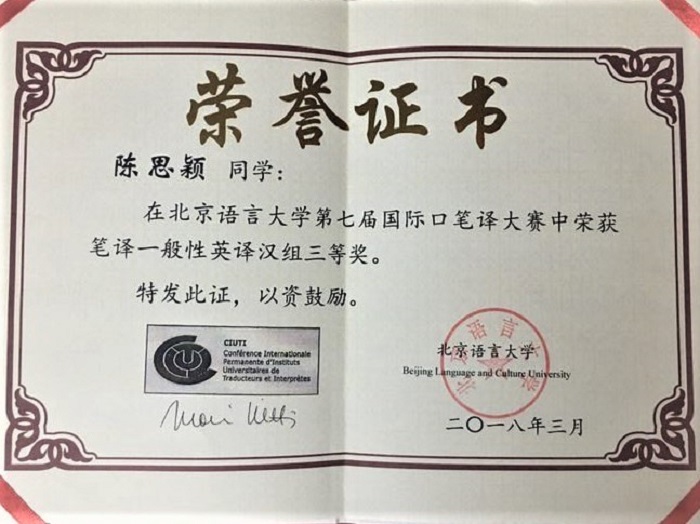 荣誉证书
陈思颖 同学：
在北京语言大学第七届国际口笔译大赛中荣获
笔译一般性英译汉组三等奖。
特发此证，以资鼓励。
CIUTI
Conférence Internationale
Permanente d'Instituts
Universitaires de
Traducteurs et Interprètes
北京语言大学
Beijing Language and Culture University
二〇一八年三月